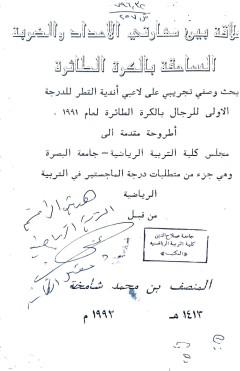 لاقة بين مهارتي الاعداد والضربة
الساحقة بالكرة الطائرة
بحث وصفي تجريبي على لاعبي أندية القطر للدرجة
الاولى للرجال بالكرة الطائرة لعام ١٩٩١
أطروحة مقدمة الى
مجلس كلية التربية الرياضية – جامعة البصرة
وهي جزء من متطلبات درجة الماجستير في التربية
الرياضية
من قبل
جامعة صلاح الدين
كلية التربية الرياضية
المكتبة
المنصف بن محمد شامخة
١٤١٣ هـ ١٩٩٢ م